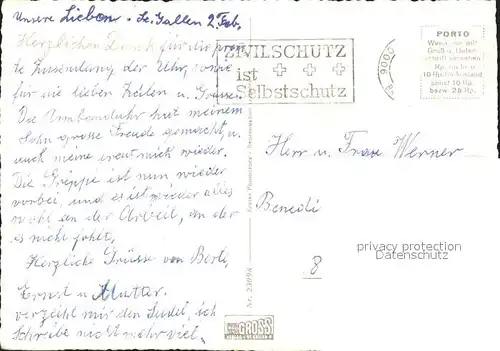 Unsere Lieben. St. Gallen 2. Feb.
Herzlichen Dank für die prom
te Zusendung der Uhr, sowie
für die lieben Zeilen u. Grüsse.
Die Armbanduhr hat meinem
Sohn grosse Freude gemacht, u.
auch meine freut mich wieder.
Die Grippe ist nun wieder
vorbei, und es ist wieder alles
wohl an der Arbeit, an der
es nicht fehlt.
Herzliche Grüsse von Berti,
Ernst u. Mutter.
verzeiht mir den Sudel, ich
schreibe nicht mehr viel.
ZIVILSCHUTZ
ist + + +
Selbstschutz
9000
PORTO
Wenn nur mit
Gruß u. Unter-
10 Rp.
bezw. 25 Rp.
Herr u. Frau Werner
Benedi
8
privacy protection
Datenschutz
Nr. 23098
GROSS